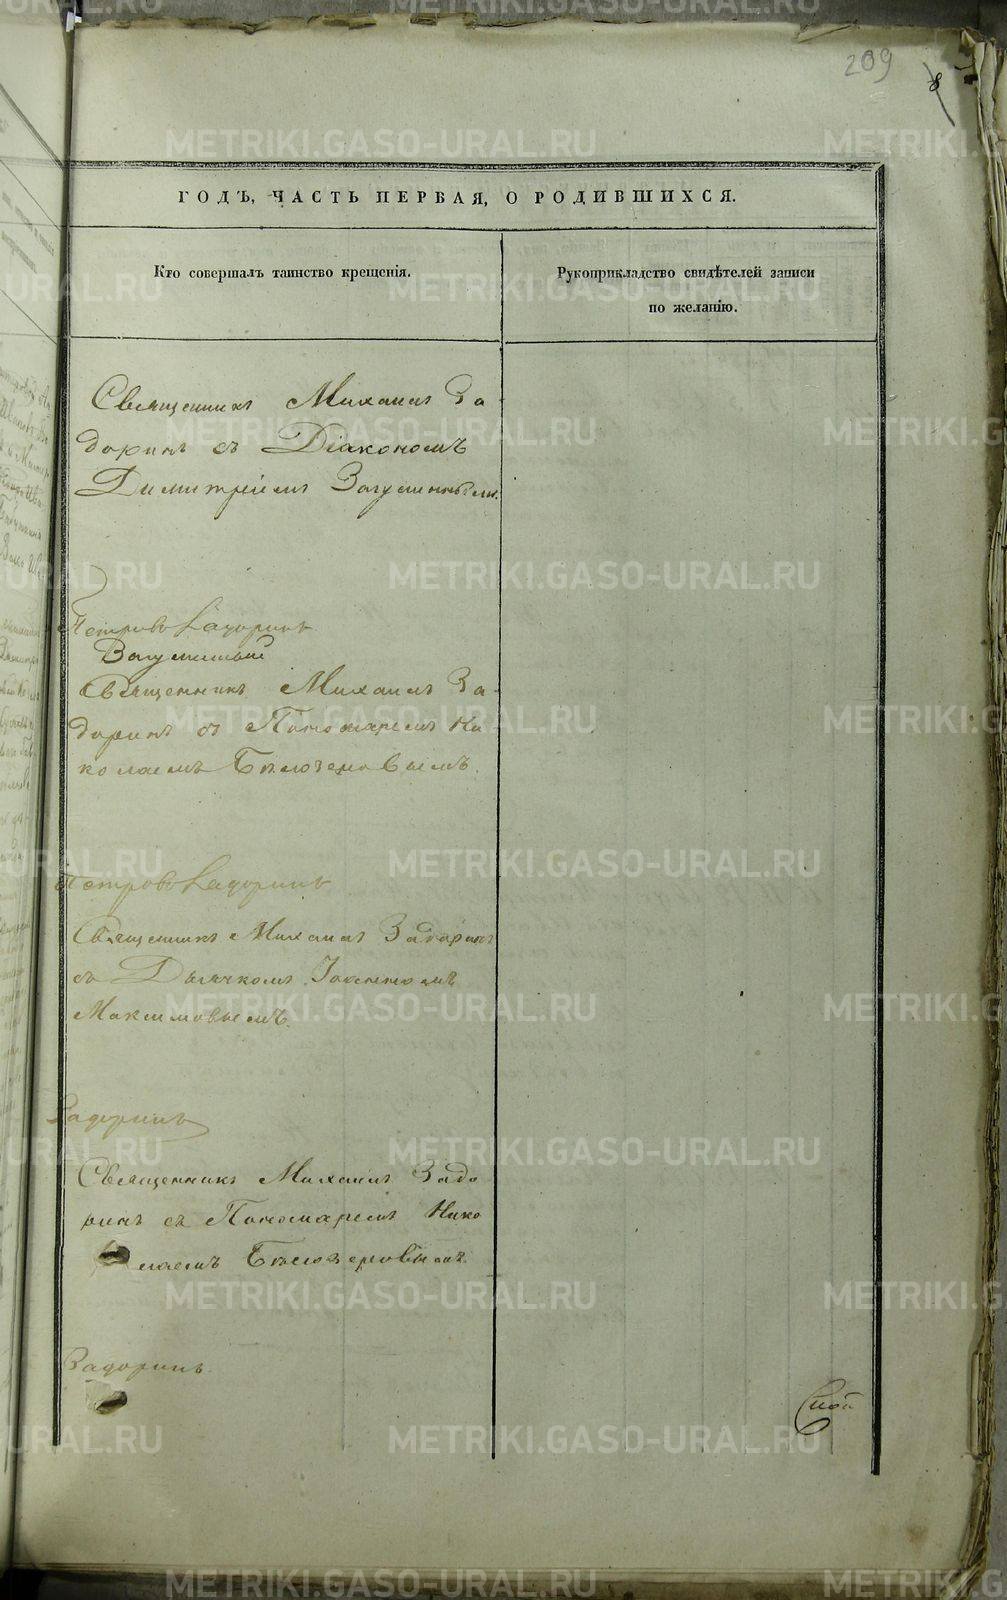 209
8
ГОДЪ, ЧАСТЬ ПЕРВАЯ, О РОДИВШИХСЯ.
Кто совершалъ таинство крещенія.
Рукоприкладство свидѣтелей записи
по желанію.
Священникъ Михаилъ За
доринъ съ Діакономъ
Димитріемъ
Задоринъ
Священникъ Михаилъ За-
доринъ съ Пономаремъ Ни
колаемъ Бѣлозеровымъ.
Задоринъ
Священникъ Михаилъ Задоринъ
съ Дьячкомъ Іоанномъ
Максимовымъ.
Задоринъ
Священникъ Михаилъ Задо
ринъ съ Пономаремъ Нико
лаемъ Бѣлозеровымъ.
Задоринъ.
METRIKI.GASO-URAL.RU